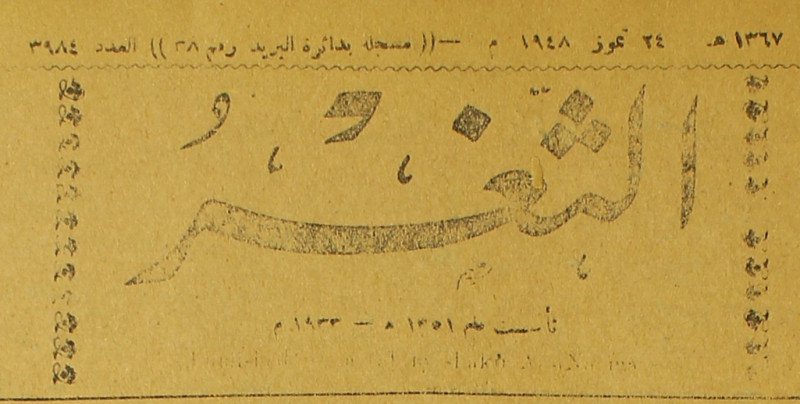 ١٣٦٧ هـ ٢٤ تموز ١٩٤٨ م —(( مسجلة بدائرة البريد رقم ٢٨ )) العدد ٣٩٨٤
الثغر
تأسست عام ١٣٥١ ه — ١٩٣٣ م